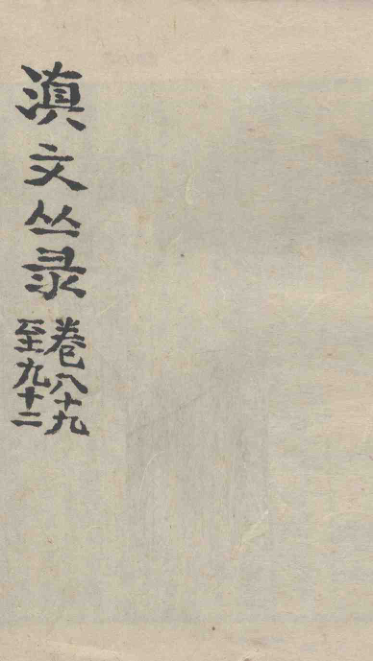 滇文丛录
卷八十九
至九十二